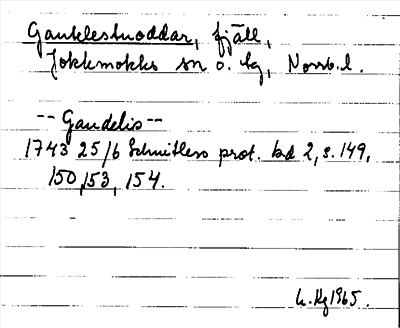 Gauklestuoddar, fjäll,
Jokkmokks sn o. hg, Norrb. l.
-- Gaudelis --
1743 25/6 Schnitlers prot. bd 2, s. 149,
150, 153, 154.
1965.